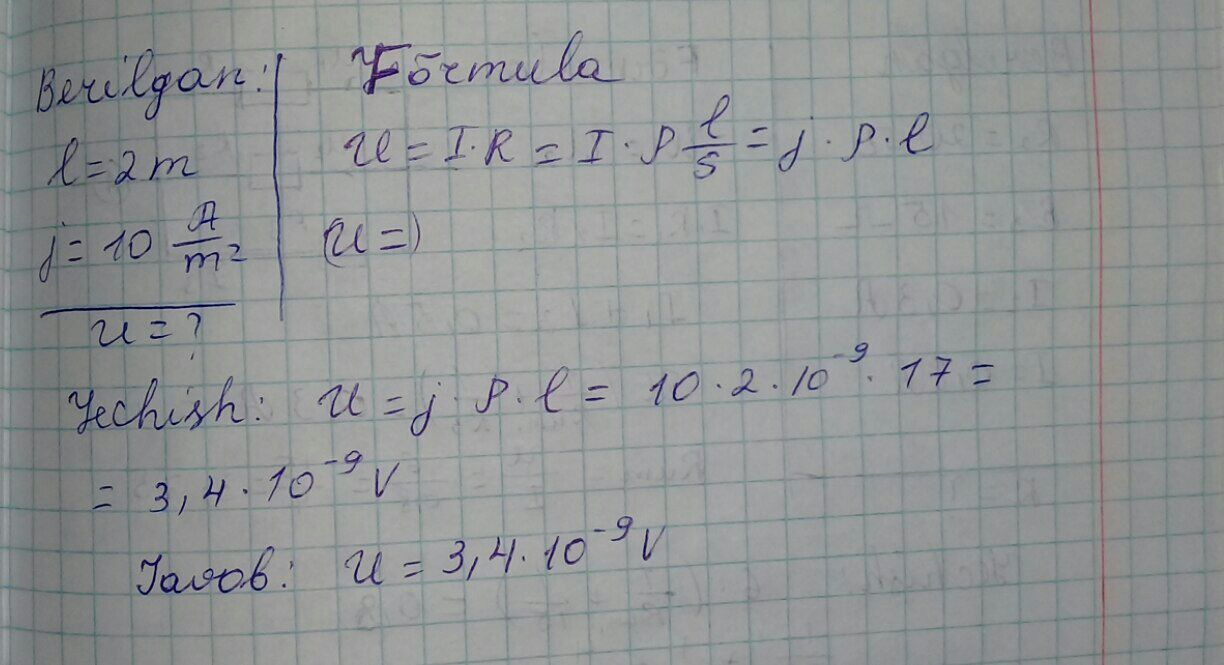 Berilgan:
l = 2 m
j = 10 A/m²
U = ?
Formula
U = I·R = I · ρ l/S = j · ρ · l
(U =)
Yechish: U = j · ρ · l = 10 · 2 · 10⁻⁹ · 17 =
= 3,4 · 10⁻⁹ V
Javob: U = 3,4 · 10⁻⁹ V